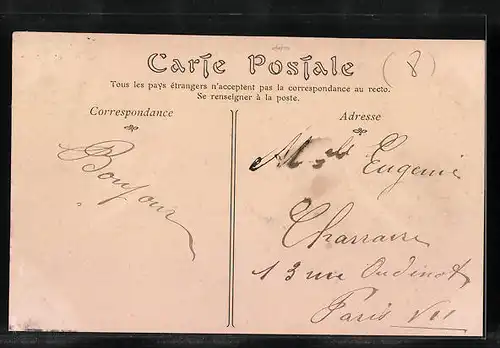 Carte Postale
(8)
Tous les pays étrangers n'acceptent pas la correspondance au recto.
Se renseigner à la poste.
Correspondance
Adresse
Bonjour
Mlle Eugenie
Charraire
13 rue Oudinot
Paris VII